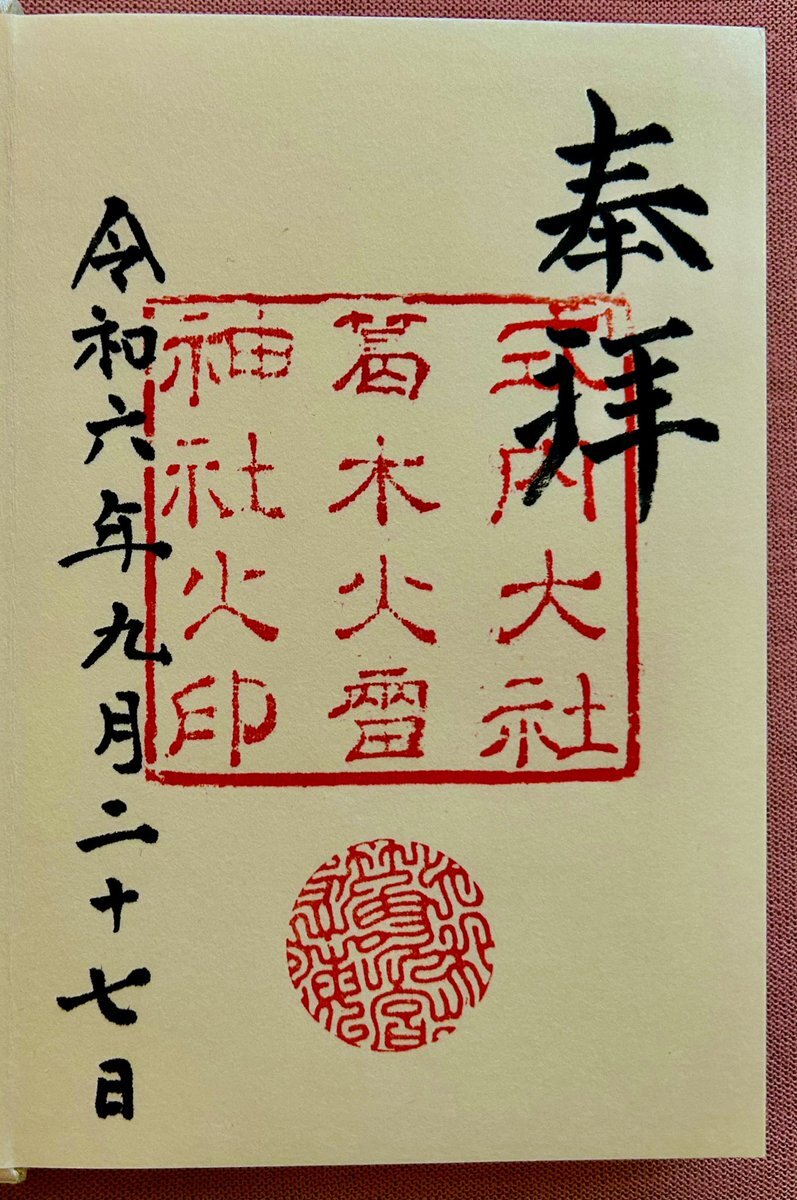 奉拝
式内大社
葛木火雷
神社火印
令和六年九月二十七日